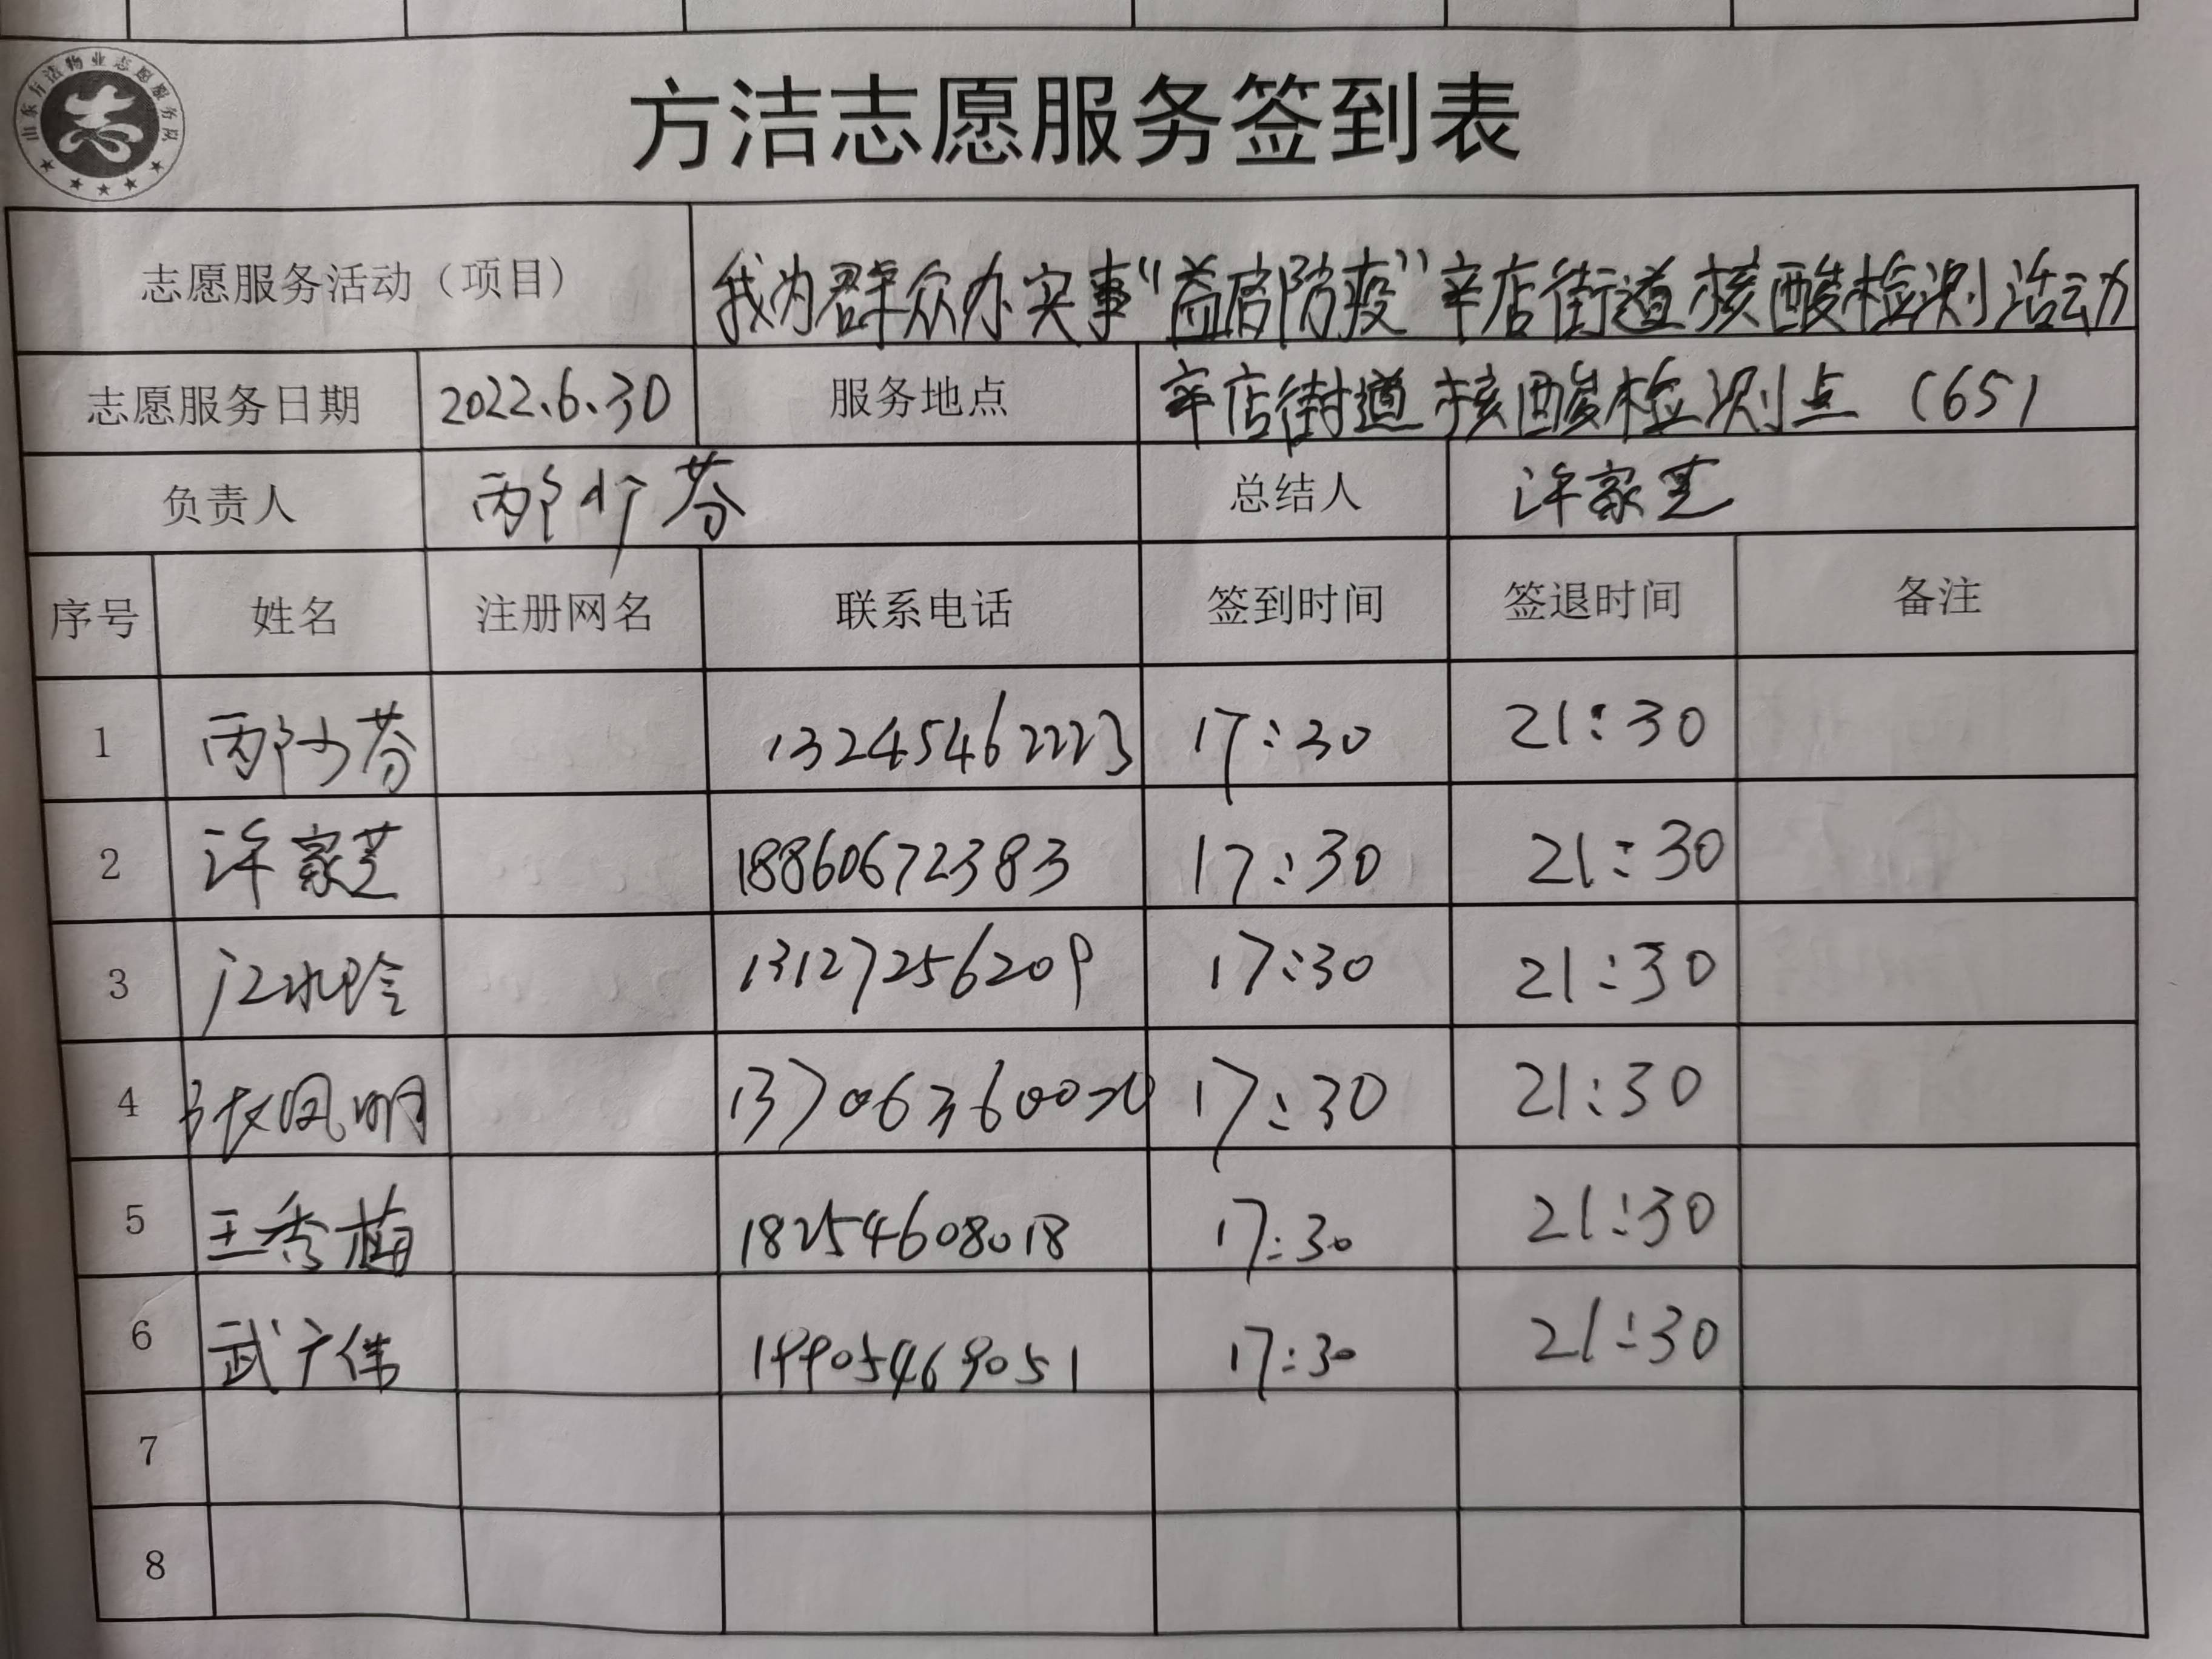 山东方洁物业志愿服务队
志
方洁志愿服务签到表
志愿服务活动（项目） 我为群众办实事“益启防疫”辛店街道核酸检测活动
志愿服务日期 2022.6.30 服务地点 辛店街道核酸检测点（65）
负责人 邴少芬 总结人 许家芝
序号 姓名 注册网名 联系电话 签到时间 签退时间 备注
1 邴少芬 13245462223 17:30 21:30
2 许家芝 18860672383 17:30 21:30
3 江水玲 13127256209 17:30 21:30
4 张凤明 17:30 21:30
5 王秀梅 18254608018 17:30 21:30
6 武广伟 19905469051 17:30 21:30
7
8